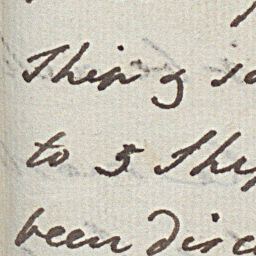 Ship & s
to 5 Ship
been disc